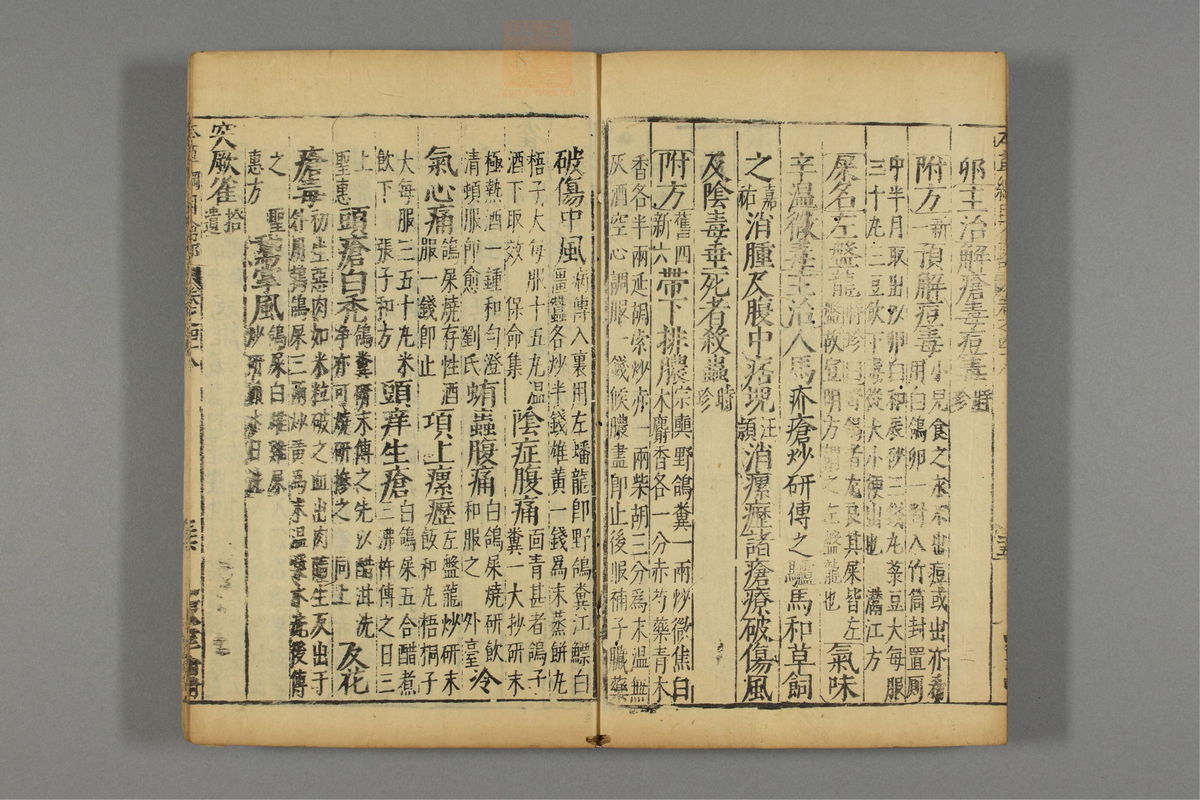 卵主治解瘡毒痘毒時珍
附方新一預解痘毒小兒食之永不出痘或出亦稀用白鴿卵一對入竹筒封置厠
中半月取出以卵白和辰砂三錢丸菉豆大每服三十丸三豆飲下毒從大小便出也 潛江方
屎名左盤龍時珍曰野鴿者尤良其屎皆左盤故宣明方謂之左盤龍也氣味
辛温微毒主治人馬疥瘡炒研傅之驢馬和草飼
之嘉祐消腫及腹中痞塊汪頴消瘰癧諸瘡療破傷風
及陰毒垂死者殺蟲時珍
附方舊四新六帶下排膿宗奭野鴿糞一兩炒微焦白
香各半兩延胡索炒赤一兩柴胡三分爲末温無
灰酒空心調服一錢候膿盡卽止後服補子臟藥
破傷中風病傳入裏用左蟠龍卽野鴿糞江鰾白
殭蠶各炒半錢雄黃一錢爲末蒸餅丸
梧子大每服十五丸温酒下取效 保命集陰症腹痛面青甚者鴿子糞一大抄研末
極熱酒一鍾和勻澄清頓服卽愈 劉氏蛕蟲腹痛白鴿屎燒研飮和服之 外臺冷
氣心痛鴿屎燒存性酒服一錢卽止項上瘰癧左盤龍炒研末飯和丸梧桐子
大每服三五十丸米飲下 張子和方頭痒生瘡白鴿屎五合醋煮三沸杵傅之日三
上 聖惠頭瘡白禿鴿糞研末傅之先以醋泔洗淨亦可燒研摻之 同上反花
瘡毒初生惡肉如米粒破之血出肉隨生反出于
之 聖惠方鵞掌風
突厥雀拾遺